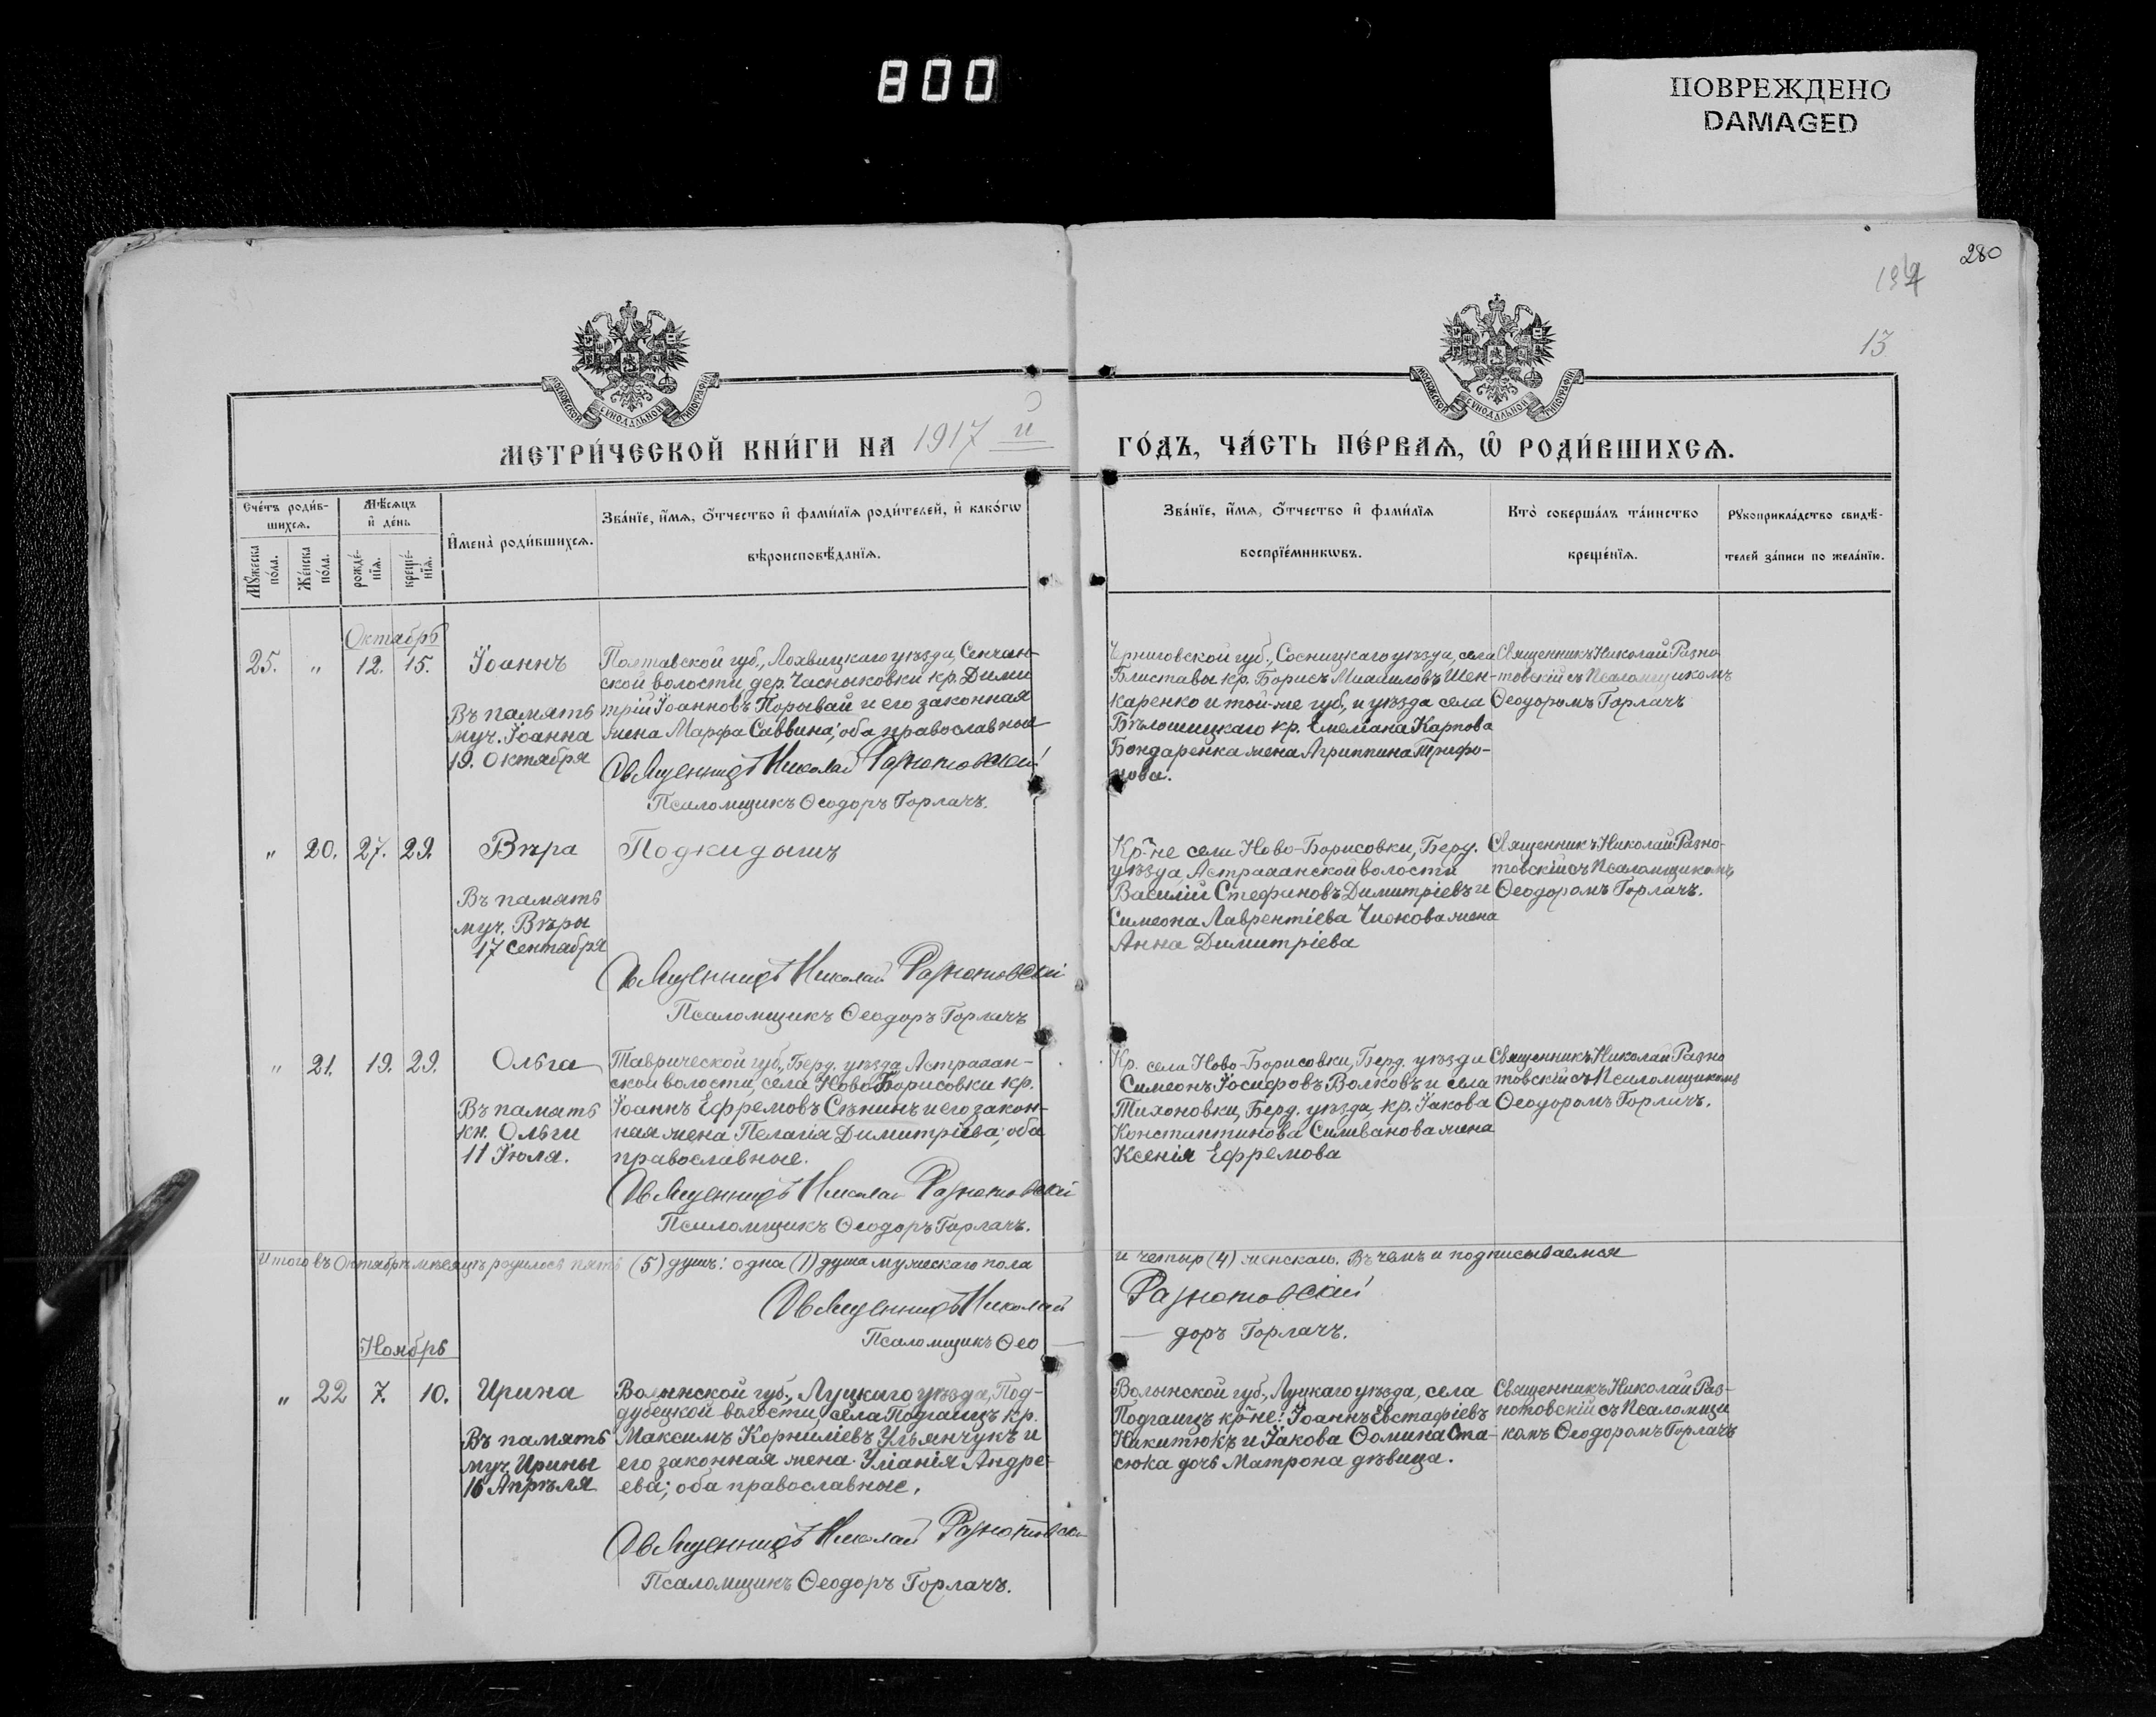 800
ПОВРЕЖДЕНО
DAMAGED
280
13
МОСКОВСКОЙ СѴНОДАЛЬНОЙ ТИПОГРАФІИ
МОСКОВСКОЙ СѴНОДАЛЬНОЙ ТИПОГРАФІИ
МЕТРИ́ЧЕСКОЙ КНИ́ГИ НА 1917 й
ГО́ДЪ, ЧА́СТЬ ПЕ́РВАѦ, Ѿ РОДИ́ВШИХСѦ.
Сче́тъ роди́в-
шихсѧ.
Мꙋ́жеска по́ла.
Же́нска по́ла.
Мѣ́сѧцъ
и҆ де́нь
рожде́-
нїѧ.
креще́-
нїѧ.
И҆мена̀ роди́вшихсѧ.
Зва́нїе, и҆́мѧ, ѻ҆́тчество и҆ фами́лїѧ роди́телей, и҆ како́гѡ
вѣроисповѣ́данїѧ.
Зва́нїе, и҆́мѧ, ѻ҆́тчество и҆ фами́лїѧ
воспрїе́мникѡвъ.
Кто̀ соверша́лъ та́инство
креще́нїѧ.
Рꙋкоприкла́дство свидѣ́-
телей за́писи по жела́нїю.
Октябрь
25. „ 12. 15. Іоаннъ
Въ память
муч. Іоанна
19. Октября
Полтавской губ., Лохвицкаго уѣзда, Сенчан-
ской волости, дер. Часныковки кр. Дими
трій Іоанновъ Порывай и его законная
жена Марфа Саввина; оба православные
Священникъ Николай Разнотовскій
Псаломщикъ Ѳеодоръ Горлачъ.
Черниговской губ., Сосницкаго уѣзда, села
Блиставы кр. Борисъ Михаиловъ Шен-
каренко и той-же губ, и уѣзда села
Бѣлошицкаго кр. Емеліана Карпова
Бондаренка жена Агриппина Трифо-
нова.
Священникъ Николай Разно
товскій съ Псаломщикомъ
Ѳеодоромъ Горлачъ
„ 20. 27. 29. Вѣра
Въ память
муч. Вѣры
17 Сентября
Подкидышъ
Священникъ Николай Разнотовскій
Псаломщикъ Ѳеодоръ Горлачъ
Кр-не села Ново-Борисовки, Берд.
уѣзда, Астраханской волости
Василій Стефановъ Димитріевъ и
Симеона Лаврентіева Чижова жена
Анна Димитріева
Священникъ Николай Разно-
товскій съ Псаломщикомъ
Ѳеодоромъ Горлачъ.
„ 21. 19. 29. Ольга
Въ память
кн. Ольги
11 Іюля.
Таврической губ., Берд. уѣзда, Астрахан-
ской волости, села Ново Борисовки кр.
Іоаннъ Ефремовъ Сѣнинъ и его закон-
ная жена Пелагія Димитріева; оба
православные.
Священникъ Николай Разнотовскій
Псаломщикъ Ѳеодоръ Горлачъ.
Кр. села Ново-Борисовки, Берд. уѣзда
Симеонъ Іосифовъ Волковъ и села
Тихоновки, Берд. уѣзда, кр. Іакова
Константинова Силиванова жена
Ксенія Ефремова
Священникъ Николай Разно
товскій съ Псаломщикомъ
Ѳеодоромъ Горлачъ.
Итого въ Октябрѣ мѣсяцѣ родилось пять (5) душъ: одна (1) душа мужескаго пола
и четыр (4) женскаго. Въ чемъ и подписываемся
Священникъ Николай Разнотовскій
Псаломщикъ Ѳео — доръ Горлачъ.
Ноябрь
„ 22 7. 10. Ирина
Въ память
муч. Ирины
16 Апрѣля
Волынской губ., Луцкаго уѣзда, Под-
дубецкой волости, села Подгаицъ кр.
Максимъ Корниліевъ Ульянчукъ и
его законная жена Уліанія Андре-
ева; оба православные.
Священникъ Николай Разнотовскі
Псаломщикъ Ѳеодоръ Горлачъ.
Волынской губ., Луцкаго уѣзда, села
Подгаицъ кр-не: Іоаннъ Евстафіевъ
Никитюкъ и Іакова Ѳомина Ста-
сюка дочь Матрона дѣвица.
Священникъ Николай Раз-
нотовскій съ Псаломщи
комъ Ѳеодоромъ Горлачъ